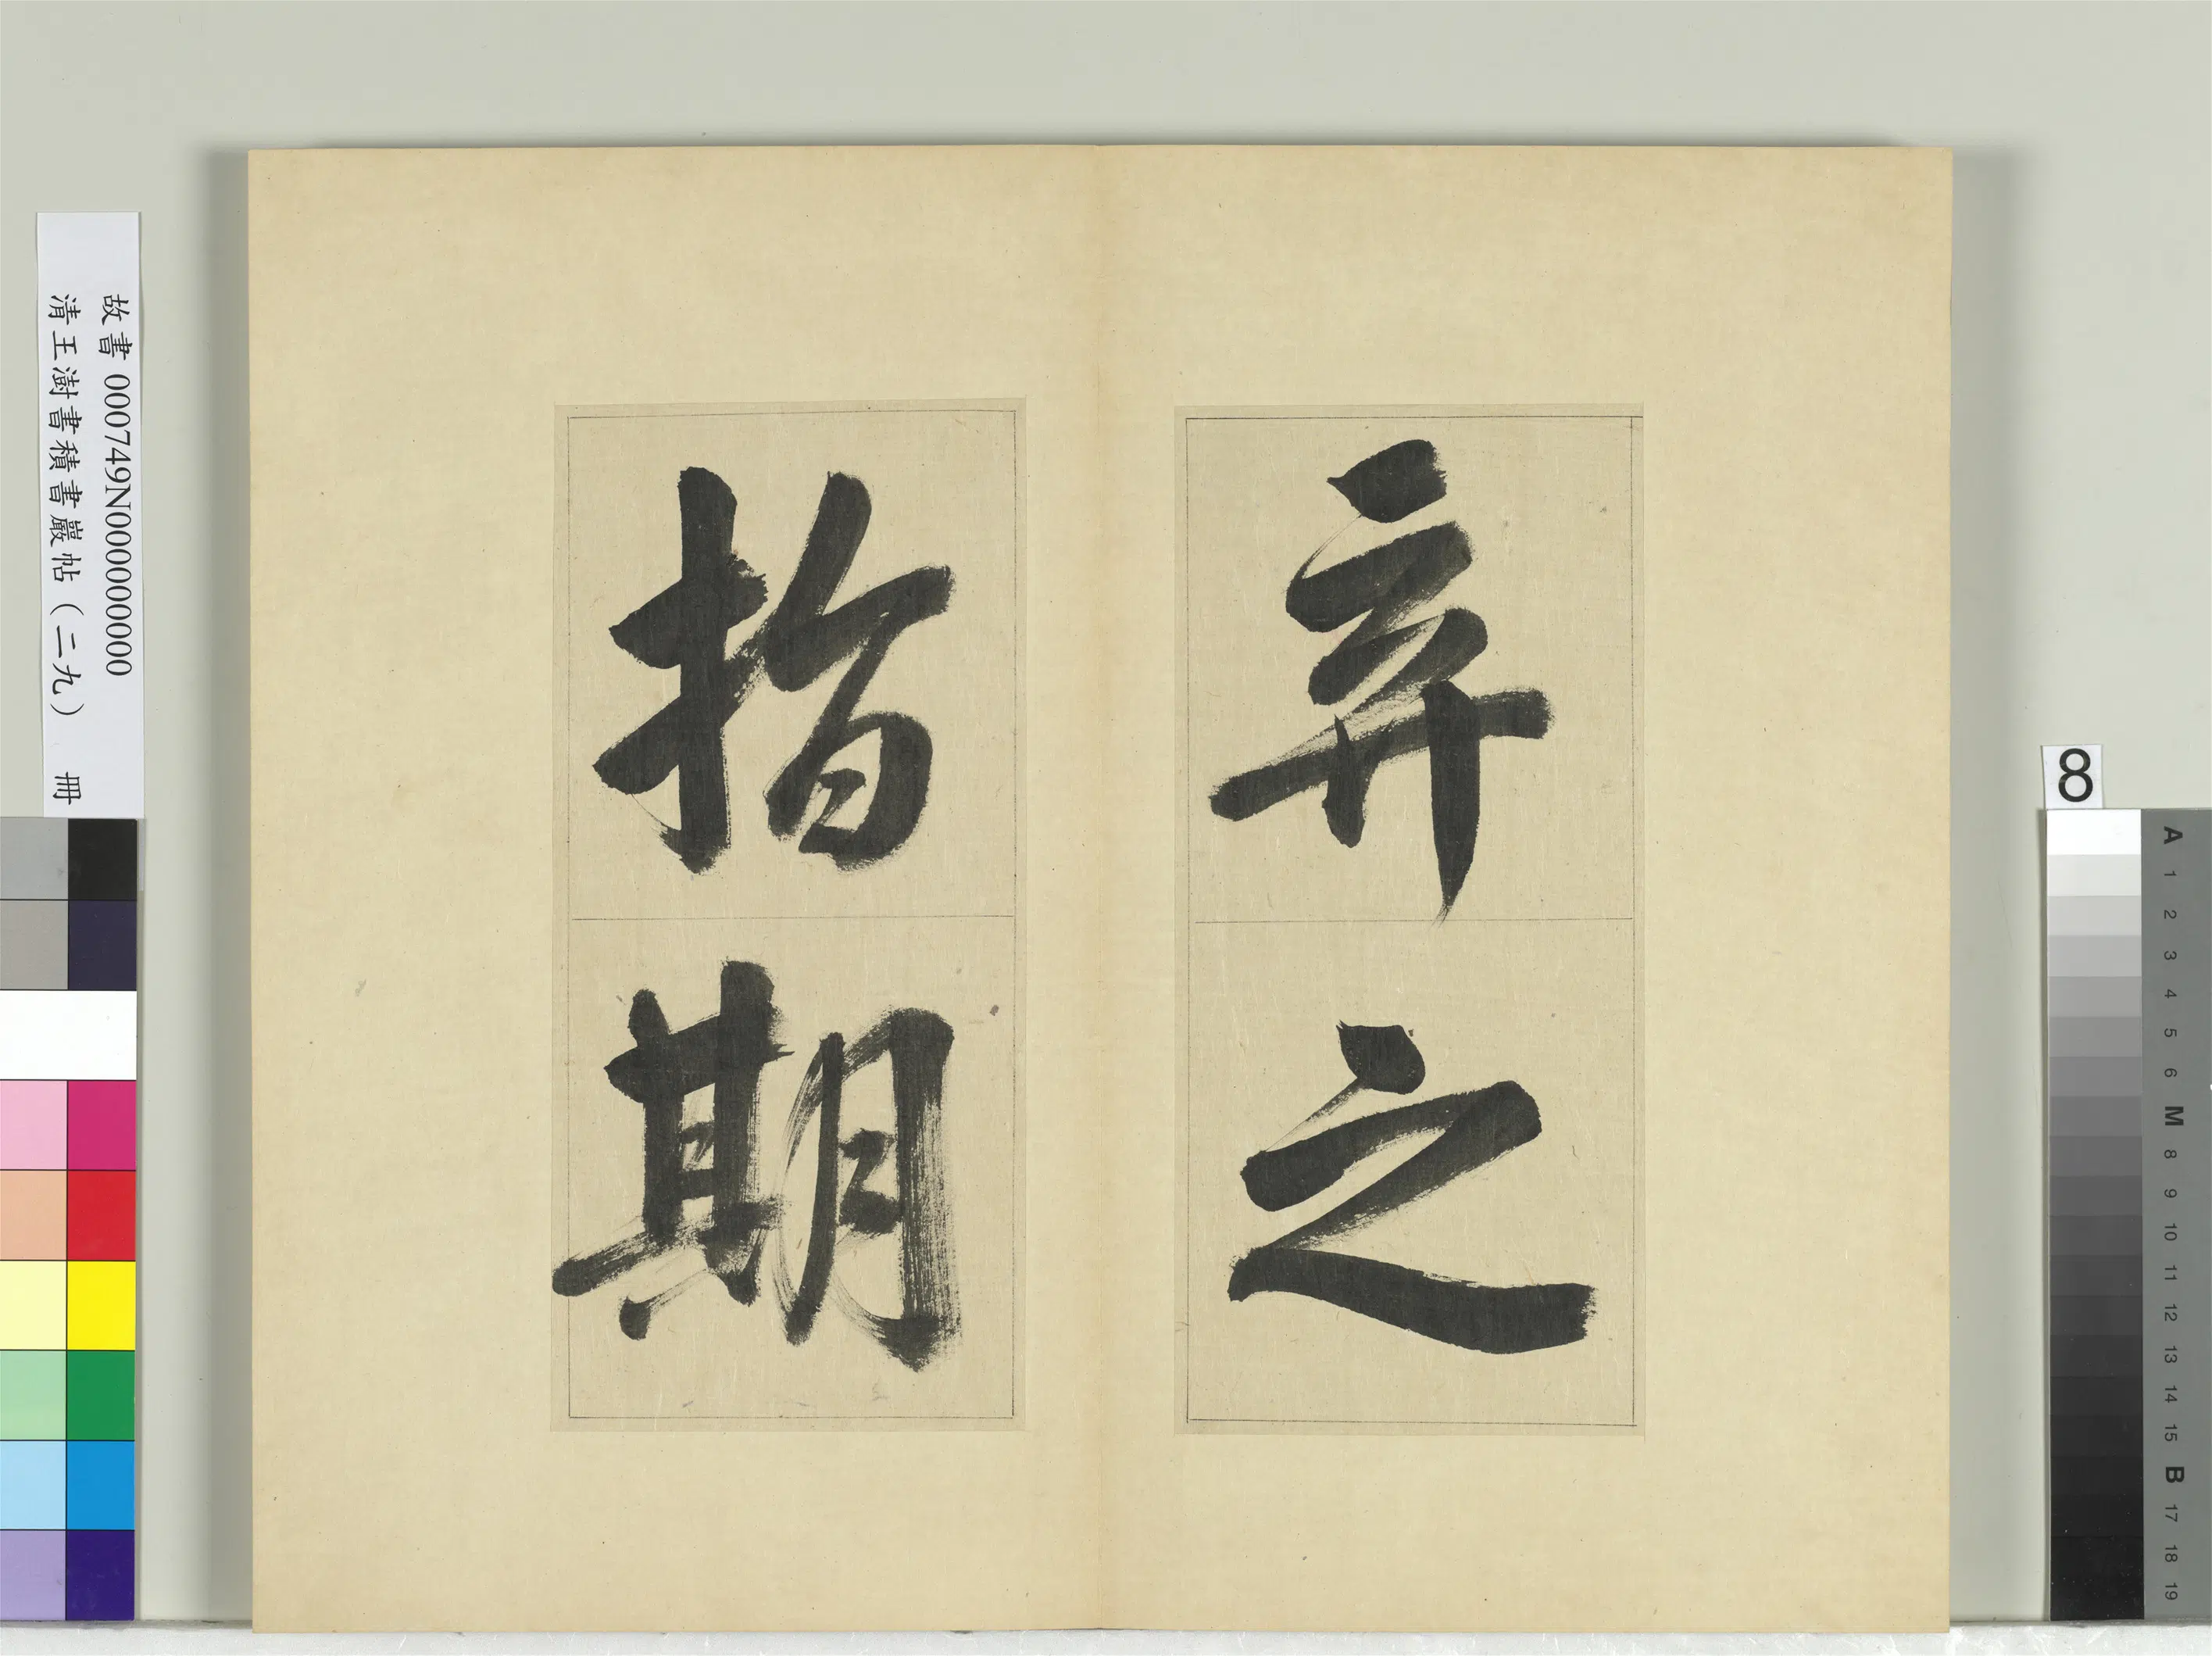 弃之
指期
故書000749N000000000
清王澍書積書巖帖（二九） 冊
8
A
1
2
3
4
5
6
M
8
9
10
11
12
13
14
15
B
17
18
19